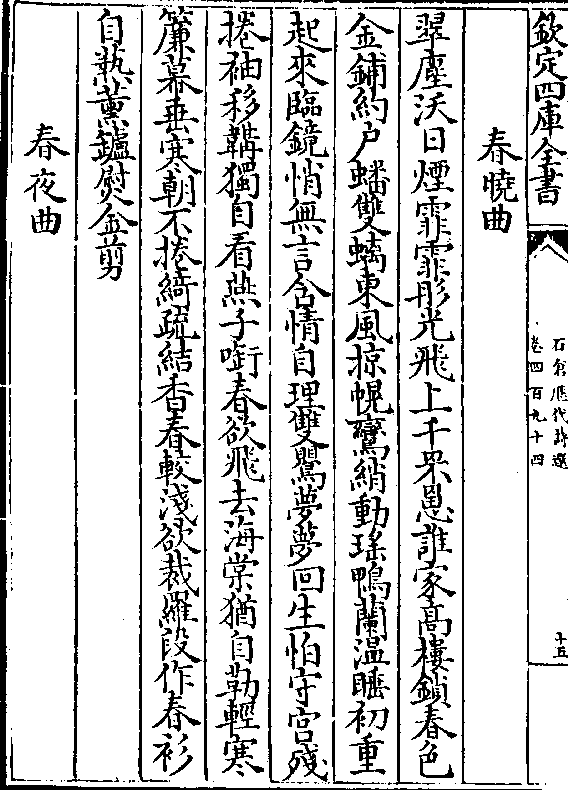 欽定四庫全書
石倉歷代詩選
卷四百九十四
十五
春曉曲
翠塵沃日煙霏霏彤光飛上千罘罳誰家高樓鎖春色
金鋪約户蟠雙螭東風掠幌鸞綃動瑤鴨蘭温睡初重
起來臨鏡悄無言含情自理雙鸎夢夢回生怕守宫殘
捲袖移鞲獨自看燕子啣春欲飛去海棠猶自勒輕寒
簾幕垂寒朝不捲綺疏結香春較淺欲裁羅段作春衫
自爇薰鑪熨金剪
春夜曲